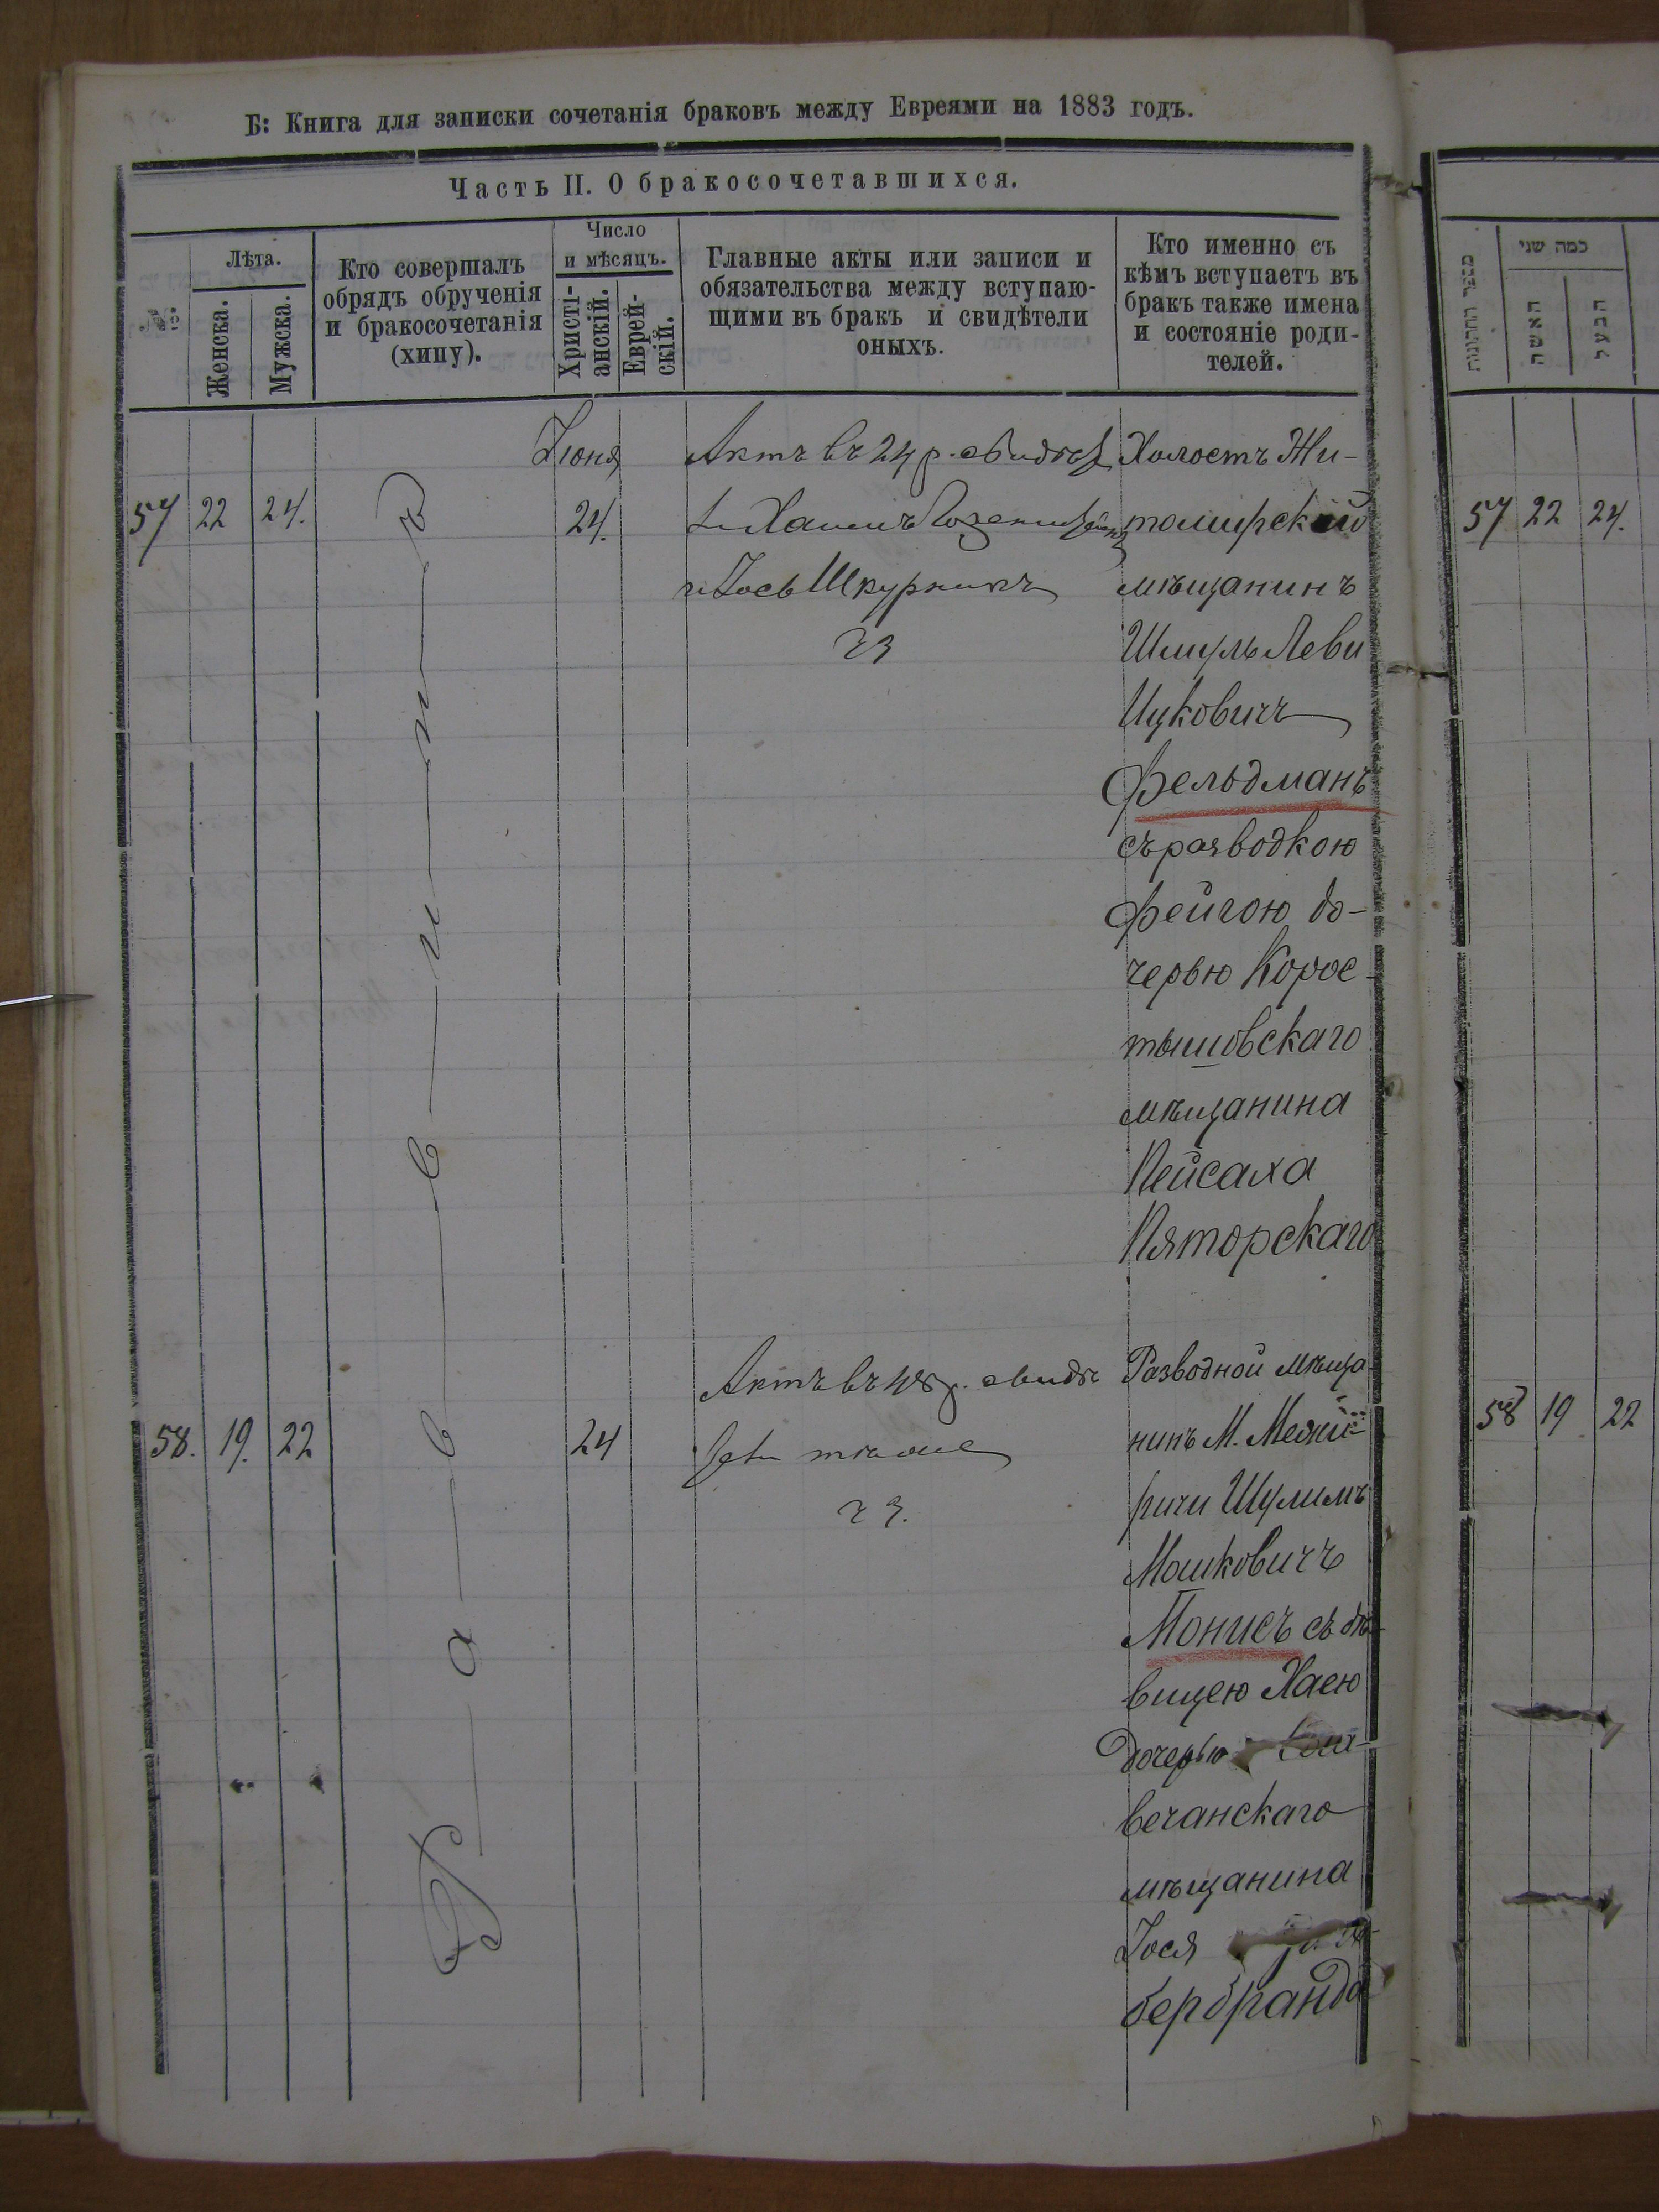 Б: Книга для записки сочетанія браковъ между Евреями на 1883 годъ.
Часть II. О бракосочетавшихся.
№
Лѣта.
Женска.
Мужска.
Кто совершалъ
обрядъ обрученія
и бракосочетанія
(хипу).
Число
и мѣсяцъ.
Христі-
анскій.
Еврей-
скій.
Главные акты или записи и
обязательства между вступаю-
щими въ бракъ и свидѣтели
оныхъ.
Кто именно съ
кѣмъ вступаетъ въ
бракъ также имена
и состояніе роди-
телей.
Раввинъ
Іюня
57 22 24. 24.
Актъ въ 24 р. свидѣ
и Іось Шкурникъ
Холостъ Жи-
томирскій
мѣщанинъ
Шмуль Леви
Ицковичъ
Фельдманъ
съ разводкою
Фейгою до-
черью Корос-
тышовскаго
мѣщанина
Пейсаха
Пяторскаго
58. 19. 22 24
Актъ въ 48 р. свидѣ
Разводной мѣща-
нинъ М. Межи-
ричи Шулимъ
Мошковичъ
Монисъ съ дѣ-
вицею Хаею
дочерью
вечанскаго
мѣщанина
Іося
бербранда
מספר החתונות
כמה שני
האשה
הבעל
57 22 24.
58 19 22